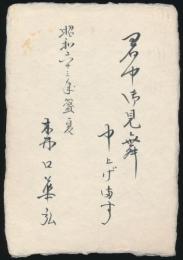 暑中御見舞
申上げます
昭和六十三年盛夏
木口華弘